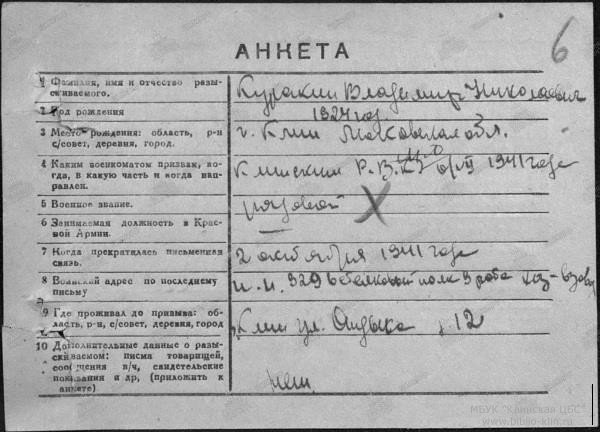 6
АНКЕТА
1 Фамилия, имя и отчество разы-
скиваемого.
Куракин Владимир Николаевич
2 Год рождения
1924 год
3 Место рождения: область, р-н
с/совет, деревня, город.
г. Клин Московская обл.
4 Каким военкоматом призван, ко-
гда, в какую часть и когда нап-
равлен.
Клинским Р.В.К. 1941 года
5 Военное звание.
рядовой
6 Занимаемая должность в Крас-
ной Армии.
—
7 Когда прекратилась письменная
связь.
2 октября 1941 года
8 Воинский адрес по последнему
письму
п.п. 929 стрелковый полк 3 рота
9 Где проживал до призыва: об-
ласть, р-н, с/совет, деревня, город
Клин ул. 12
10 Дополнительные данные о разы-
скиваемом: писма товарищей,
сообщения в/ч, свидетельские
показания и др, (приложить к
анкете)
нет
МБУК "Клинская ЦБС"
www.biblio-klin.ru